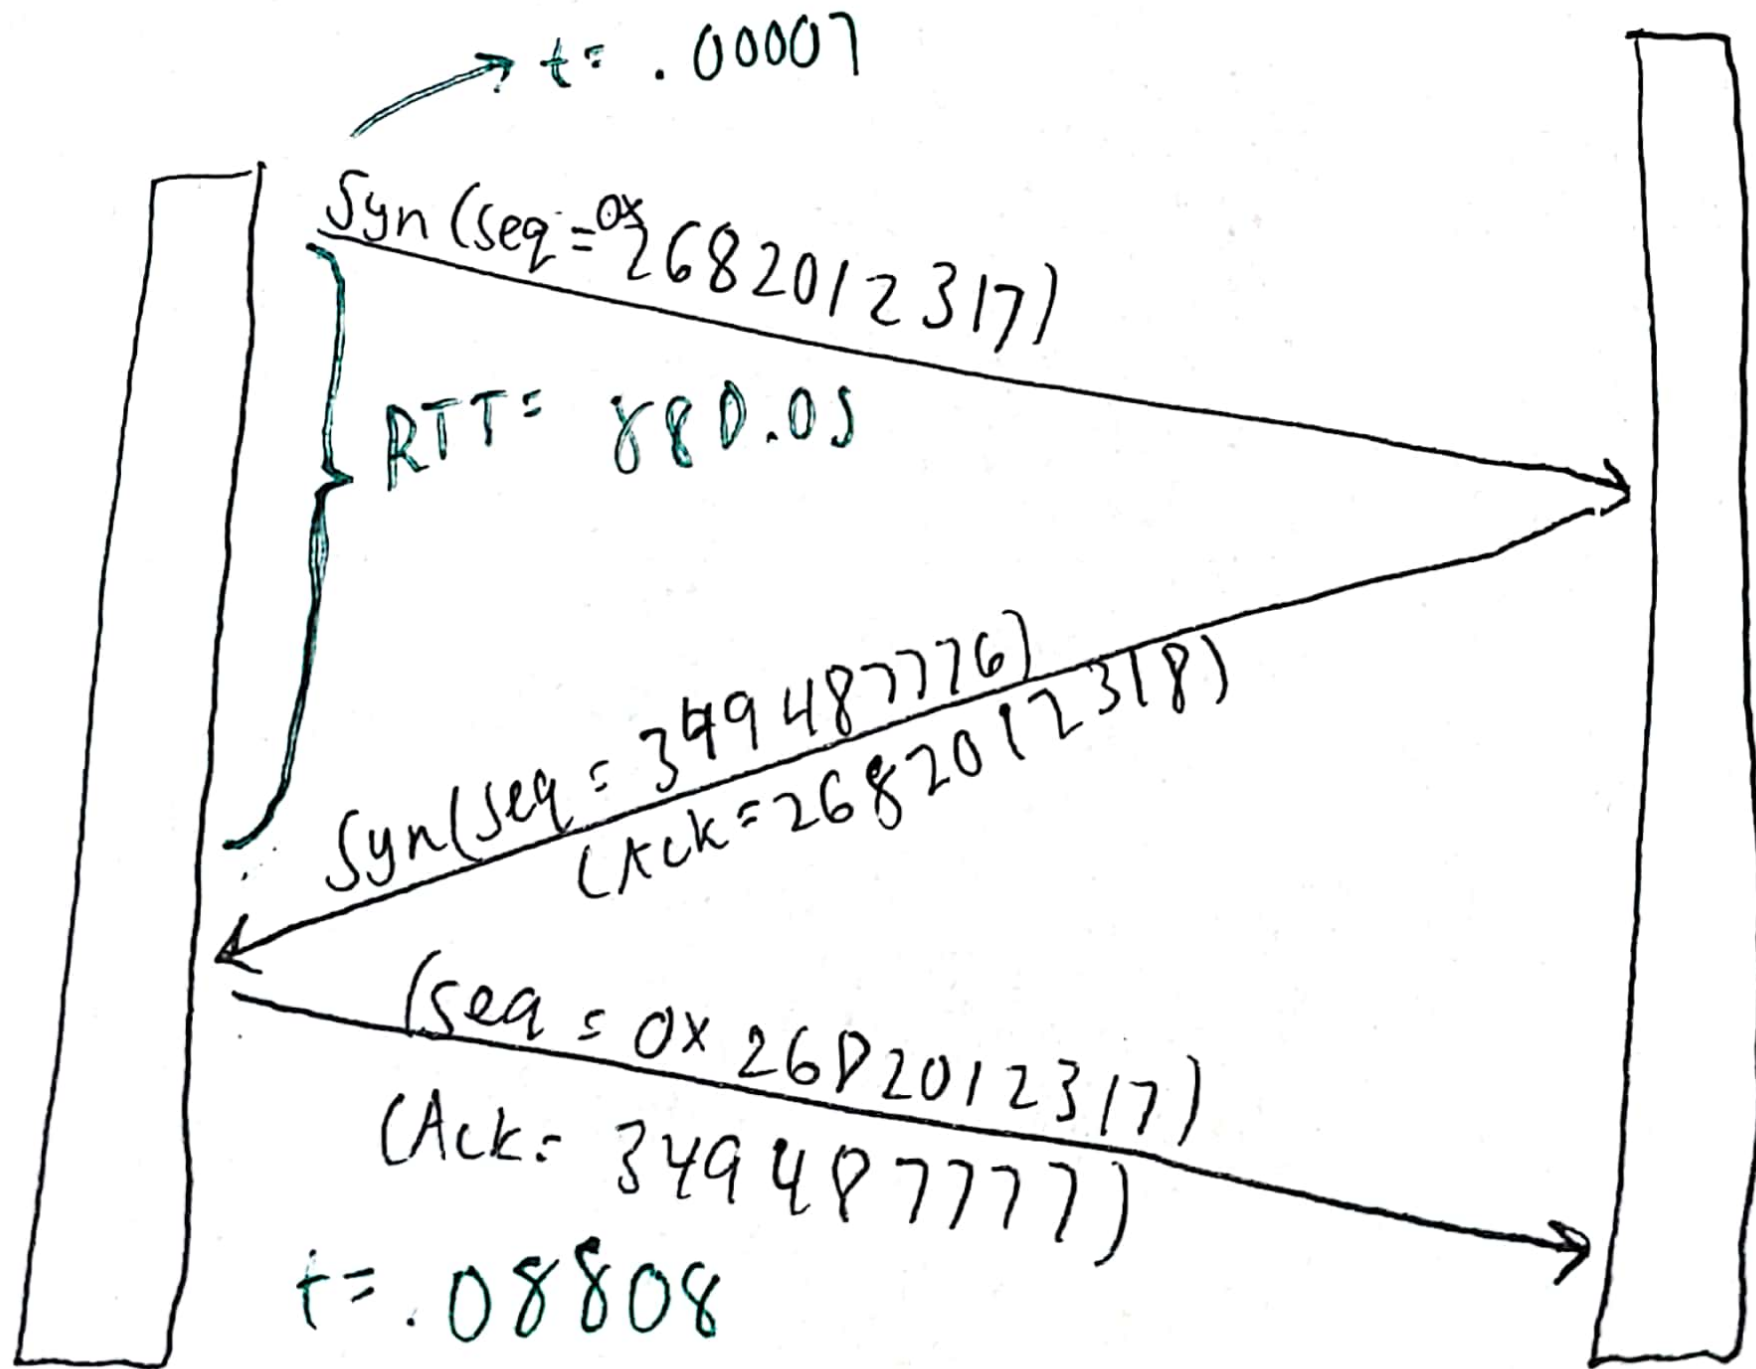 t= .00007
Syn (seq = 0x2682012317)
RTT= 880.05
Syn(seq = 349487776)
(Ack = 2682012318)
(seq = 0x2682012317)
(Ack= 349487777)
t= .08808